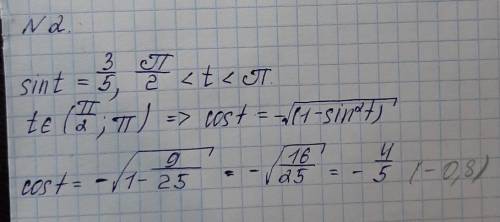 N2.
sint = 3/5, π/2 < t < π.
t∈(π/2; π) => cost = -√(1-sin²t)
cost = -√(1-9/25) = -√(16/25) = -4/5 (-0,8)